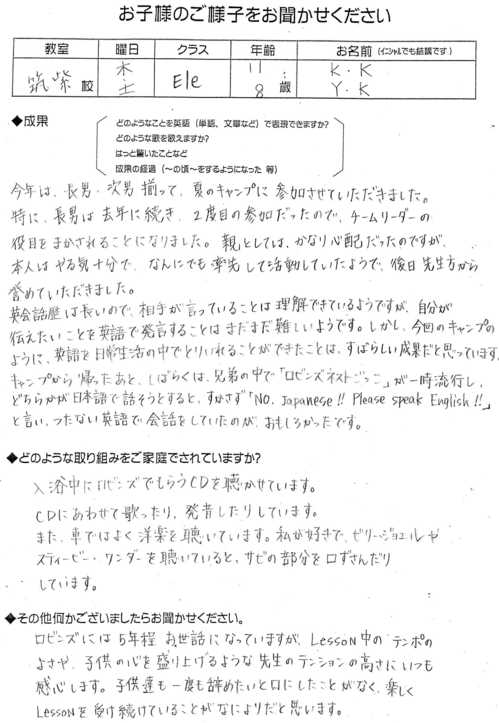 お子様のご様子をお聞かせください
教室 曜日 クラス 年齢 お名前（イニシャルでも結構です）
筑紫校 木・土 Ele 11:8歳 K.K Y.K
◆成果
どのようなことを英語（単語、文章など）で表現できますか？
どのような歌を歌えますか？
はっと驚いたことなど
成果の経過（〜の頃〜をするようになった 等）
今年は、長男・次男揃って、夏のキャンプに参加させていただきました。
特に、長男は去年に続き、2度目の参加だったので、チームリーダーの
役目をまかされることになりました。親としては、かなり心配だったのですが、
本人はやる気十分で、なんにでも率先して活動していたようで、後日先生方から
誉めていただきました。
英会話歴は長いので、相手が言っていることは理解できているようですが、自分が
伝えたいことを英語で発言することはまだまだ難しいようです。しかし、今回のキャンプの
ように、英語を日常生活の中でとりいれることができたことは、すばらしい成果だと思っています。
キャンプから帰ったあと、しばらくは、兄弟の中で「ロビンズネストごっこ」が一時流行し、
どちらかが日本語で話そうとすると、すかさず「NO, Japanese!! Please speak English!!」
と言い、つたない英語で会話をしていたのが、おもしろかったです。
◆どのような取り組みをご家庭でされていますか？
入浴中にロビンズでもらうCDを聴かせています。
CDにあわせて歌ったり、発音したりしています。
また、車ではよく洋楽を聴いています。私が好きで、ビリージョエルや
スティービー・ワンダーを聴いていると、サビの部分を口ずさんだり
しています。
◆その他何かございましたらお聞かせください。
ロビンズには5年程お世話になっていますが、Lesson中のテンポの
よさや、子供の心を盛り上げるような先生のテンションの高さにいつも
感心します。子供達も一度も辞めたいと口にしたことがなく、楽しく
Lessonを受け続けていることがなによりだと思います。